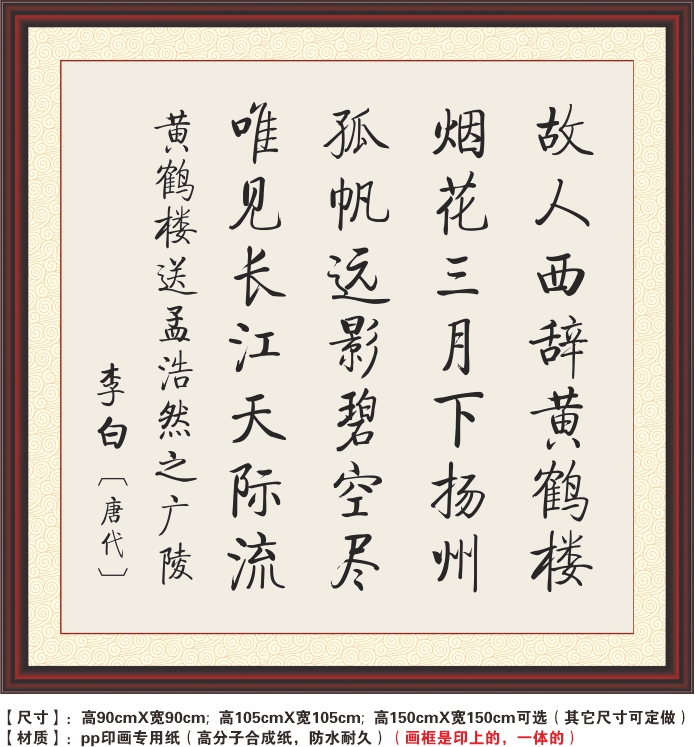 故人西辞黄鹤楼
烟花三月下扬州
孤帆远影碧空尽
唯见长江天际流
黄鹤楼送孟浩然之广陵
李白〔唐代〕
【尺寸】：高90cmX宽90cm; 高105cmX宽105cm; 高150cmX宽150cm可选（其它尺寸可定做）
【材质】：pp印画专用纸（高分子合成纸，防水耐久）（画框是印上的，一体的）